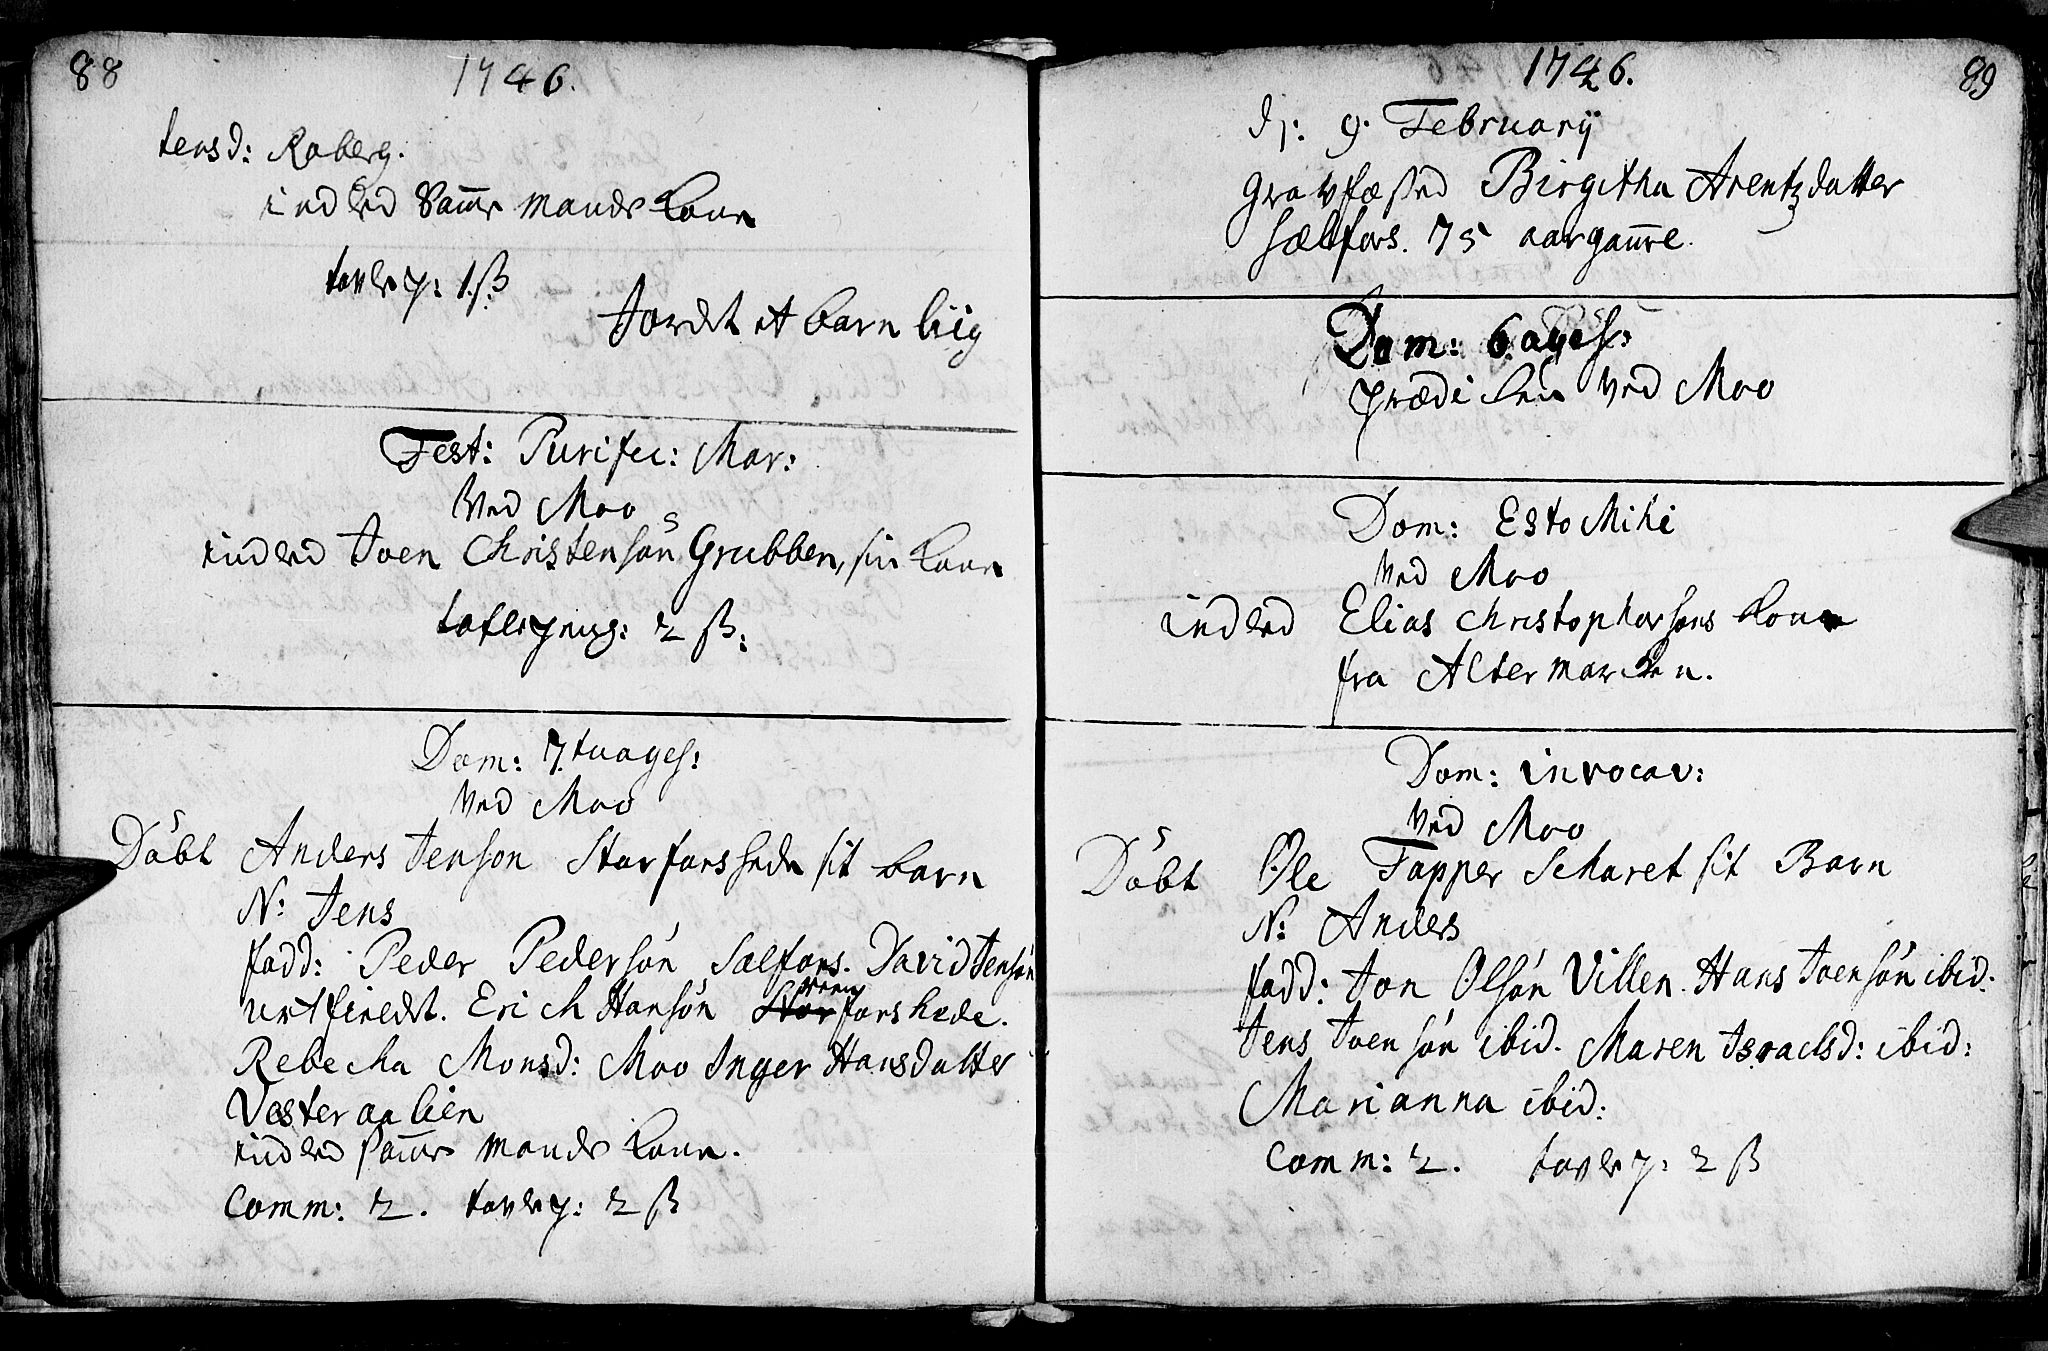 88
1746.
tensd: Raberg.
indled Samme Mands kone
tavlep: 1.ß
Jordet et barn liig
Fest: Purific: Mar:
Ved Moo
indled Joen Christensøn Grubben, sin kone
taflepeng: 2 ß:
Dom: 7.tuages:
Ved Moo
Döbt Anders Jenson Storforshede sit barn
N: Jens
fadd: Peder Pedersón Sælfors. David Jensón
Erich Hansón forshede.
Rebecha Monsd: Moo Inger Hansdatter
Vesteraalien
indled samme Mands kone.
Comm: 2. tavlep: 2 ß
1746.
89
d: 9. February
Gravfæsted Birgitha Arentzdatter
Sælfors. 75 aar gam̄el.
Dom: 6.ages:
prædiken Ved Moo
Dom: Esto Mihi
Ved Moo
indled Elias Christophersøns kone
fra Altermarken.
Dom: invocav:
Ved Moo
Döbt Ole Tapper Scharet sit Barn
N: Anders
fadd: Jon Olsón Villen. Hans Joensón ibid:
Jens Joensón ibid. Maren Israelsd: ibid:
Marianna ibid:
Comm: 2. tavlep: 2 ß